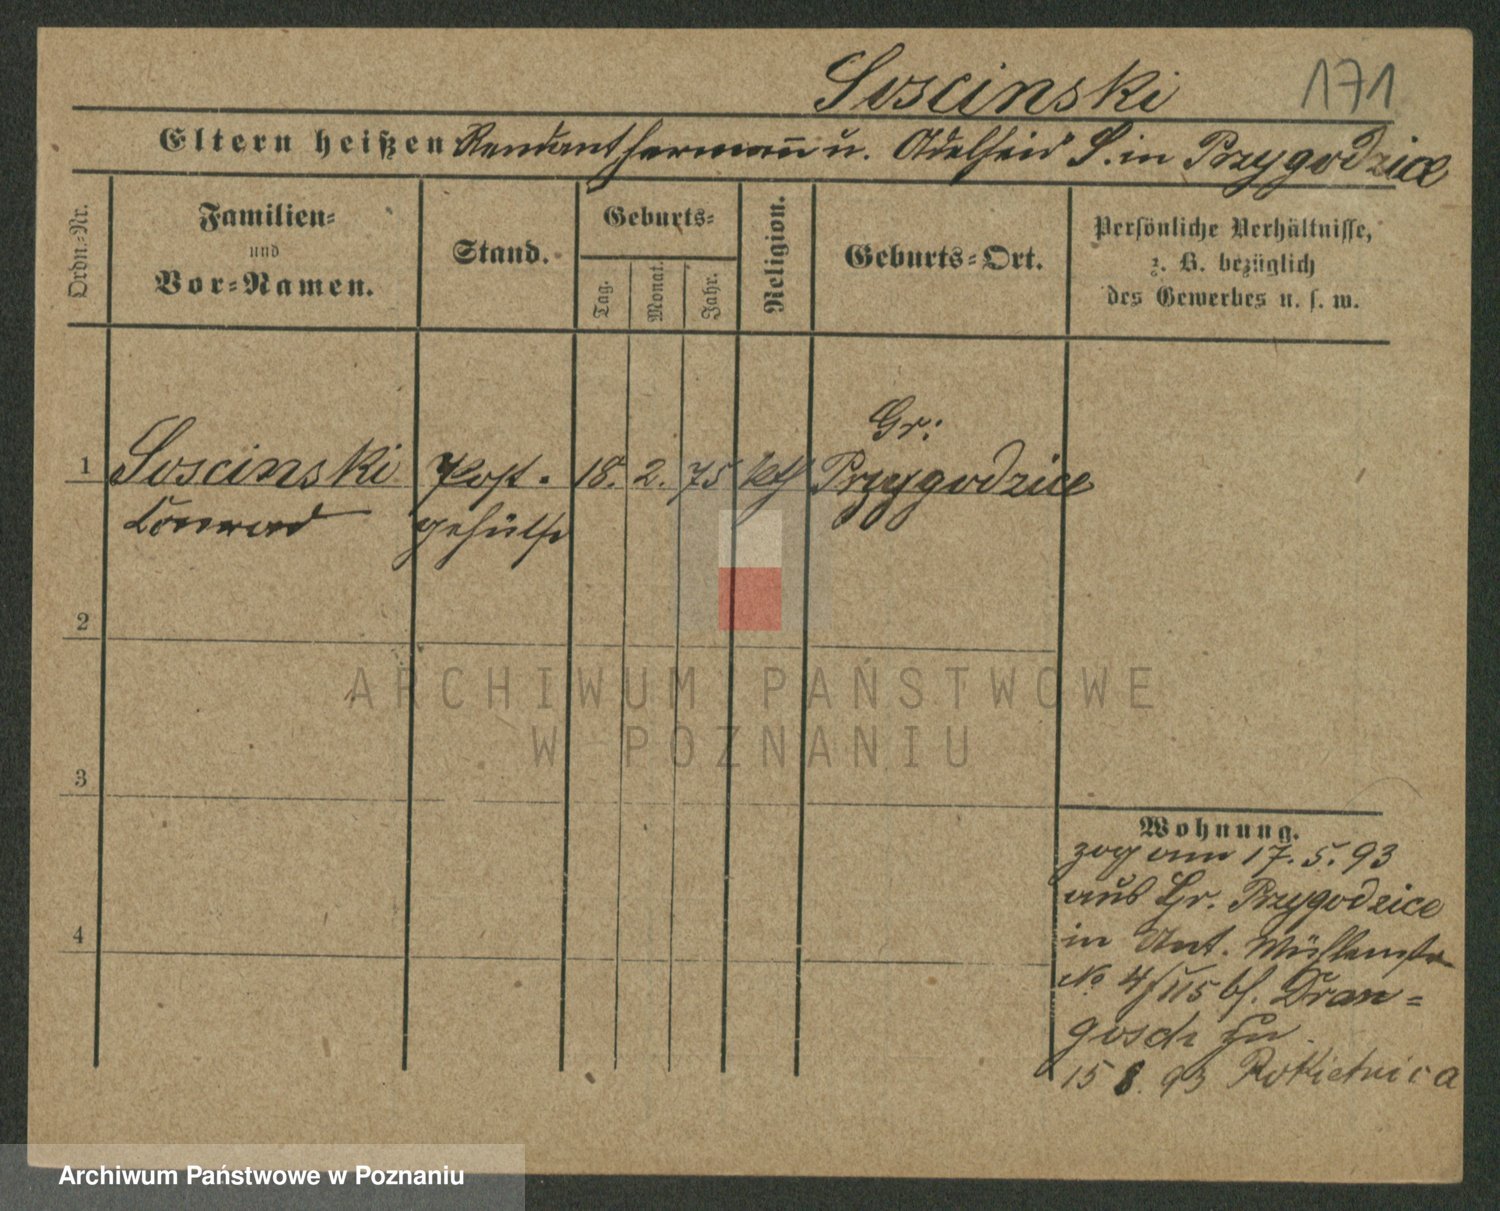 Soscinski 171
Eltern heißen Rendant Hermann u. Adelheid S. in Przygodzice
Ordn.-Nr.
Familien-
und
Vor-Namen.
Stand.
Geburts-
Tag.
Monat.
Jahr.
Religion.
Geburts-Ort.
Persönliche Verhältnisse,
z. B. bezüglich
des Gewerbes u. s. w.
Gr:
1 Soscinski Post- 18. 2. 75 kth Przygodzice
Conrad gehülfe
2
3
4
ARCHIWUM PAŃSTWOWE
W POZNANIU
Wohnung.
zog am 17. 5. 93
aus Gr. Przygodzice
in Unt. Mühlenstr
No 4/II5 bei Dran-
gosch zu
15 8. 93 Rokietnica
Archiwum Państwowe w Poznaniu